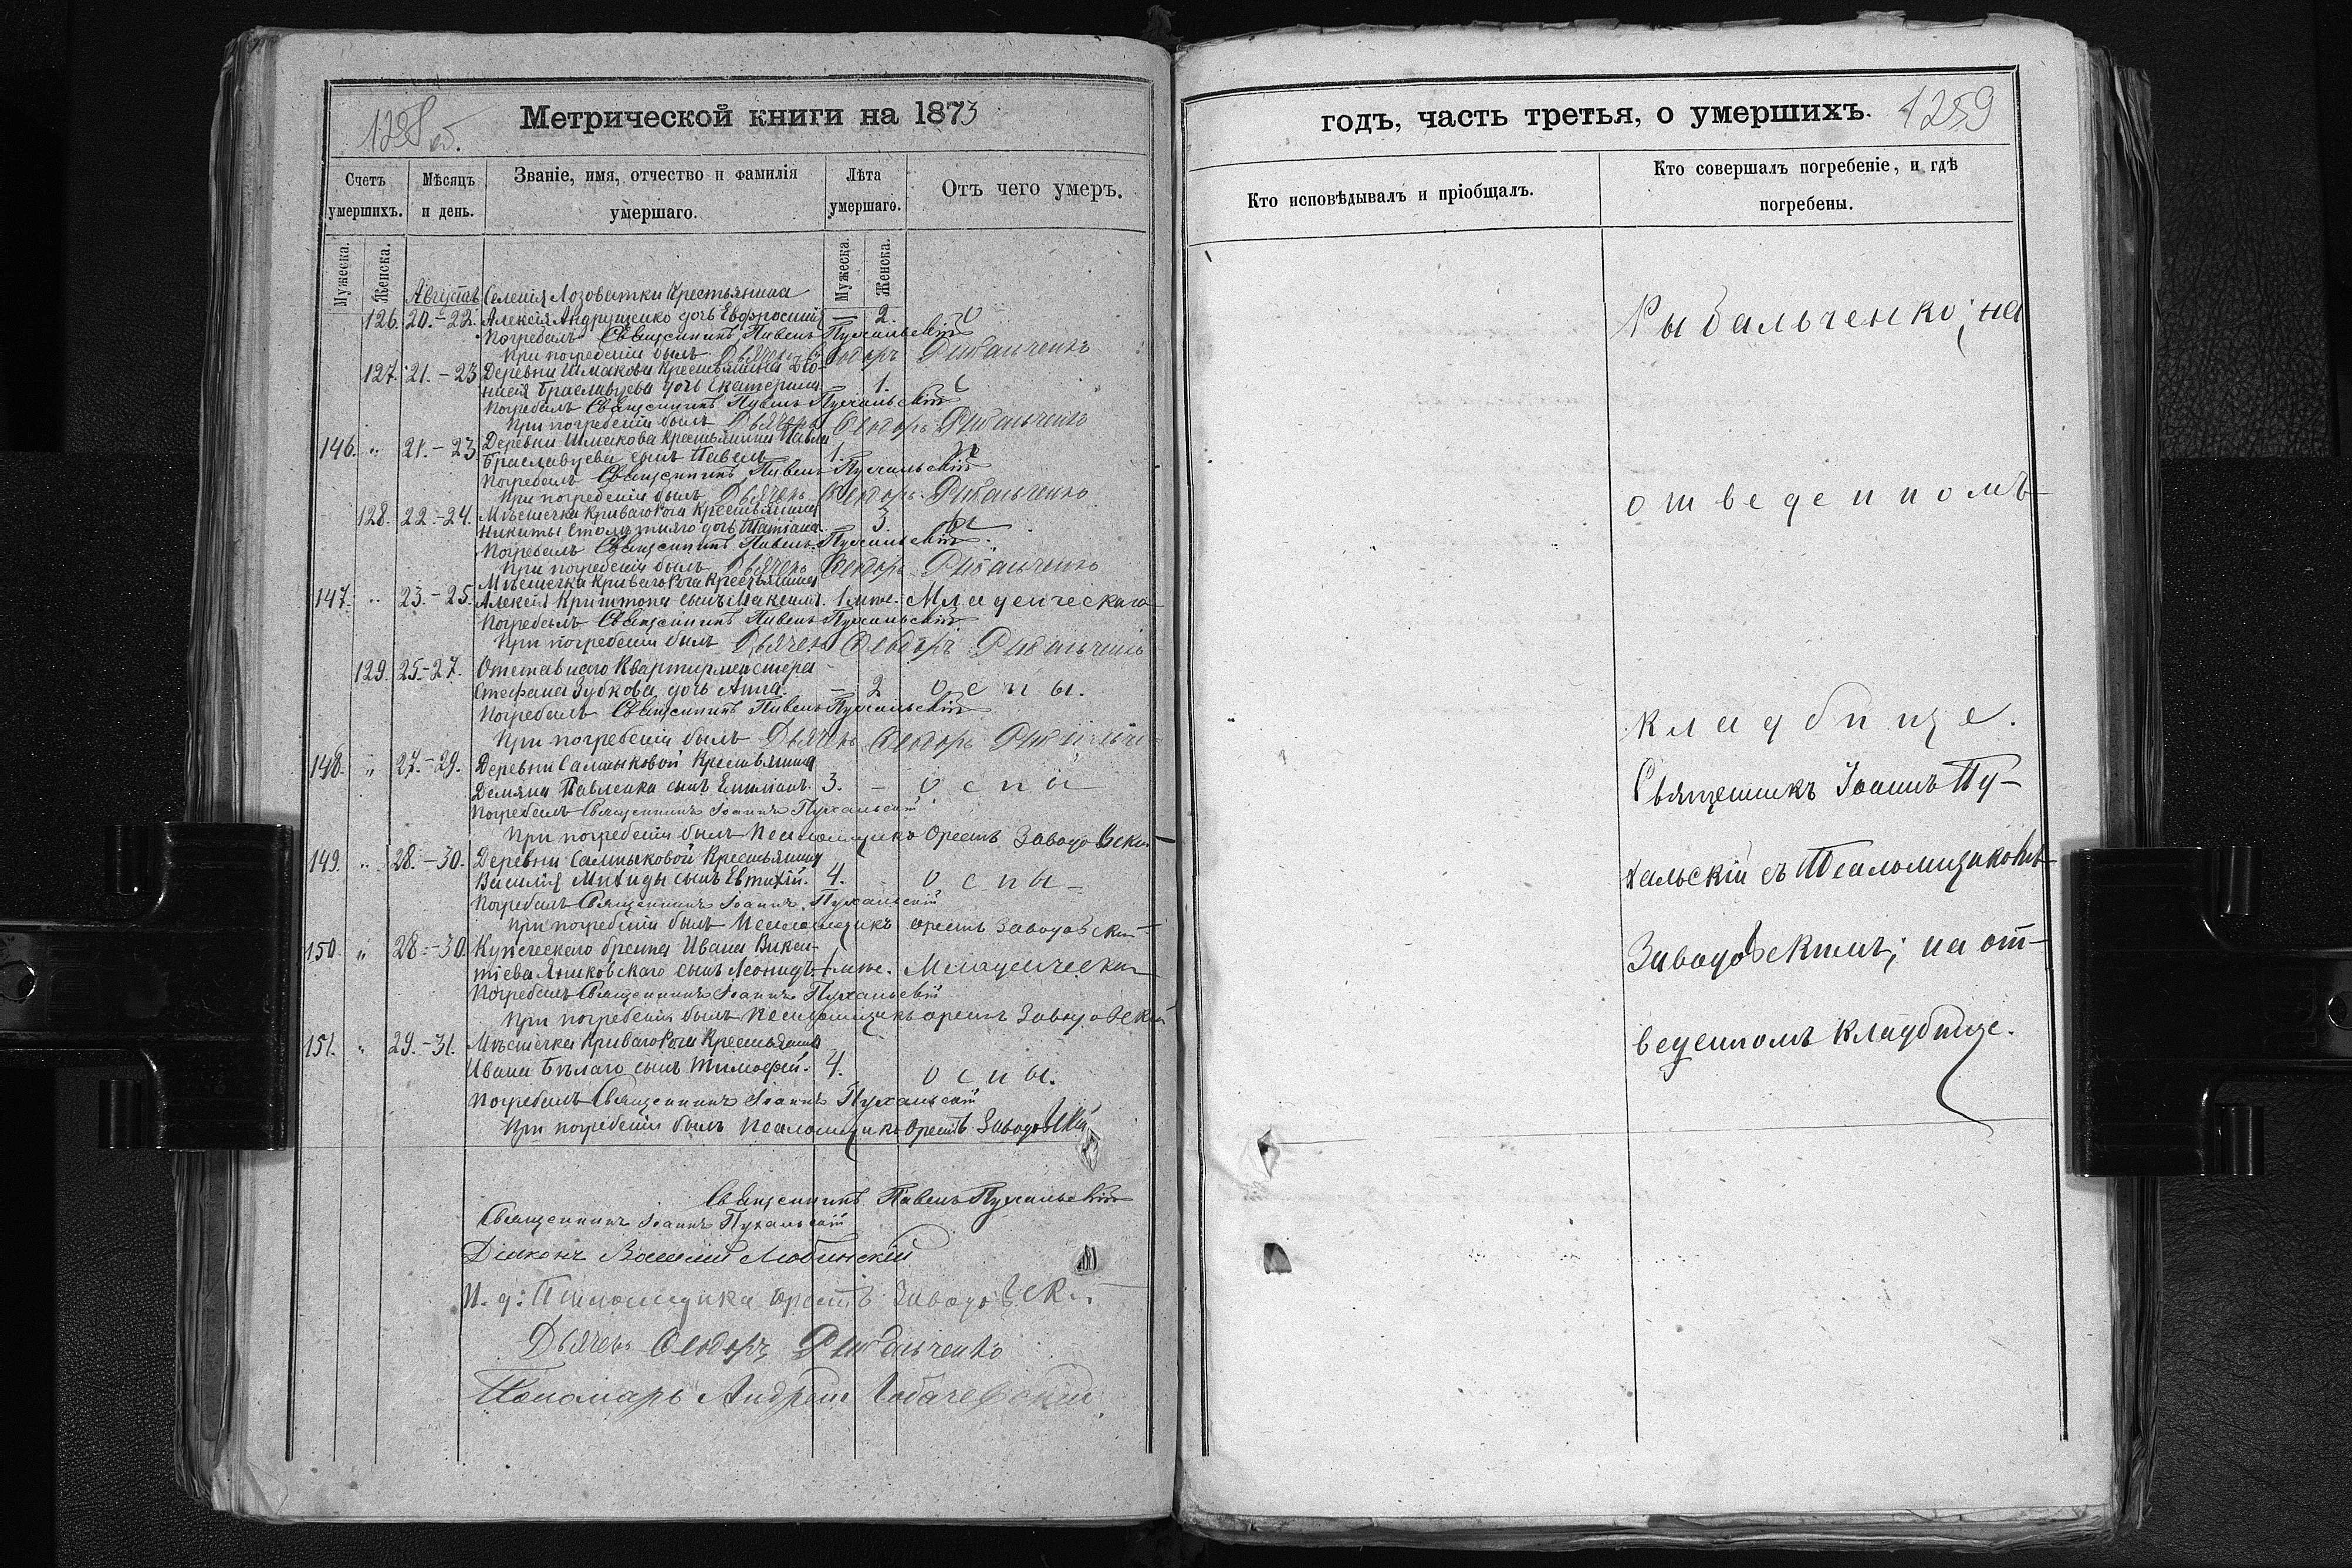 Метрической книги на 1873
Счетъ умершихъ.
Мѣсяцъ и день.
Званіе, имя, отчество и фамилія умершаго.
Лѣта умершаго.
Отъ чего умеръ.
Мужеска. Женска. Мужеска. Женска.
Августъ Селенія Лозоватки Крестьянина
126. 20.-22. Алексія Андрущенко дочь Евфросинія — 2. О
Погребалъ Священникъ Павелъ Пухальскій
При погребеніи былъ Дьячекъ Ѳеодоръ Рыбальченко
127. 21.-23 Деревни Шмаковой Крестьянина Діо-
нисія Браславцева дочь Екатерина 1. с
Погребалъ Священникъ Павелъ Пухальскій
При погребеніи былъ Дьячекъ Ѳеодоръ Рыбальченко
146. " 21.-23 Деревни Шмакова Крестьянина Павла
Браславцева сынъ Павелъ 1. п
Погребалъ Священникъ Павелъ Пухальскій
При погребеніи былъ Дьячекъ Ѳеодоръ Рыбальченко
128. 22.-24. Мѣстечка Криваго Рога Крестьянина
Никиты дочь Татіана. 3. ы
Погребалъ Священникъ Павелъ Пухальскій
При погребеніи былъ Дьячекъ Ѳеодоръ Рыбальченко
Мѣстечка Криваго Рога Крестьянина
147. " 23.-25. Алексія Криштопа сынъ Максимъ. 1 мѣс. Младенческаго
Погребалъ Священникъ Павелъ Пухальскій
При погребеніи былъ Дьячекъ Ѳеодоръ Рыбальченко
129. 25.-27. Отставнаго Квартирмейстера
Стефана Зубкова дочь Анна. — 2 Оспы.
Погребалъ Священникъ Павелъ Пухальскій
При погребеніи былъ Дьячекъ Ѳеодоръ
148. " 27.-29. Деревни Салтыковой Крестьянина
Деміяна Павленка сынъ 3. — Оспы
Погребалъ Священникъ Іоаннъ Пухальскій
При погребеніи былъ Псаломщикъ Орестъ Заводовскій
149. " 28.-30. Деревни Салтыковой Крестьянина
Василія Михиды сынъ Евтихій. 4. Оспы
Погребалъ Священникъ Іоаннъ Пухальскій
При погребеніи былъ Псаломщикъ Орестъ Заводовскій
150. " 28.-30. Купеческаго брата Ивана Викен-
тіева Яшковскаго сынъ Леонидъ. 1 мѣс. Младенческаго
Погребалъ Священникъ Іоаннъ Пухальскій
При погребеніи былъ Псаломщикъ Орестъ Заводовскій
151. " 29.-31. Мѣстечка Криваго Рога Крестьянина
Ивана Бѣлаго сынъ Тимофей. 4. Оспы.
Погребалъ Священникъ Іоаннъ Пухальскій
При погребеніи былъ Псаломщикъ Орестъ Заводовскій
Священникъ Павелъ Пухальскій
Священникъ Іоаннъ Пухальскій
Діаконъ Василій Любинскій
И. д. Псаломщика Орестъ Заводовскій
Дьячекъ Ѳеодоръ Рыбальченко
Пономарь Андрей
годъ, часть третья, о умершихъ. 1259
Кто исповѣдывалъ и пріобщалъ.
Кто совершалъ погребеніе, и гдѣ погребены.
Рыбальченко; на
отведенномъ
кладбище.
Священникъ Іоаннъ Пу-
хальскій съ Псаломщикомъ
Заводовскимъ; на от-
веденномъ кладбище.